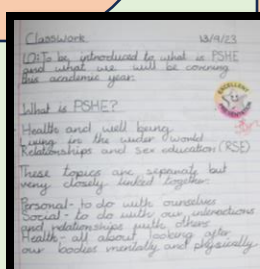 Classwork 13/9/23
LO: To be introduced to what is PSHE
and what we will be covering
this academic year.
What is PSHE?
Health and well being
Living in the wider world
Relationships and sex education (RSE)
These topics are separate but
very closely linked together.
Personal - to do with ourselves
Social - to do with our interactions
and relationships with others
Health - all about looking after
our bodies mentally and physically
EXCELLENT